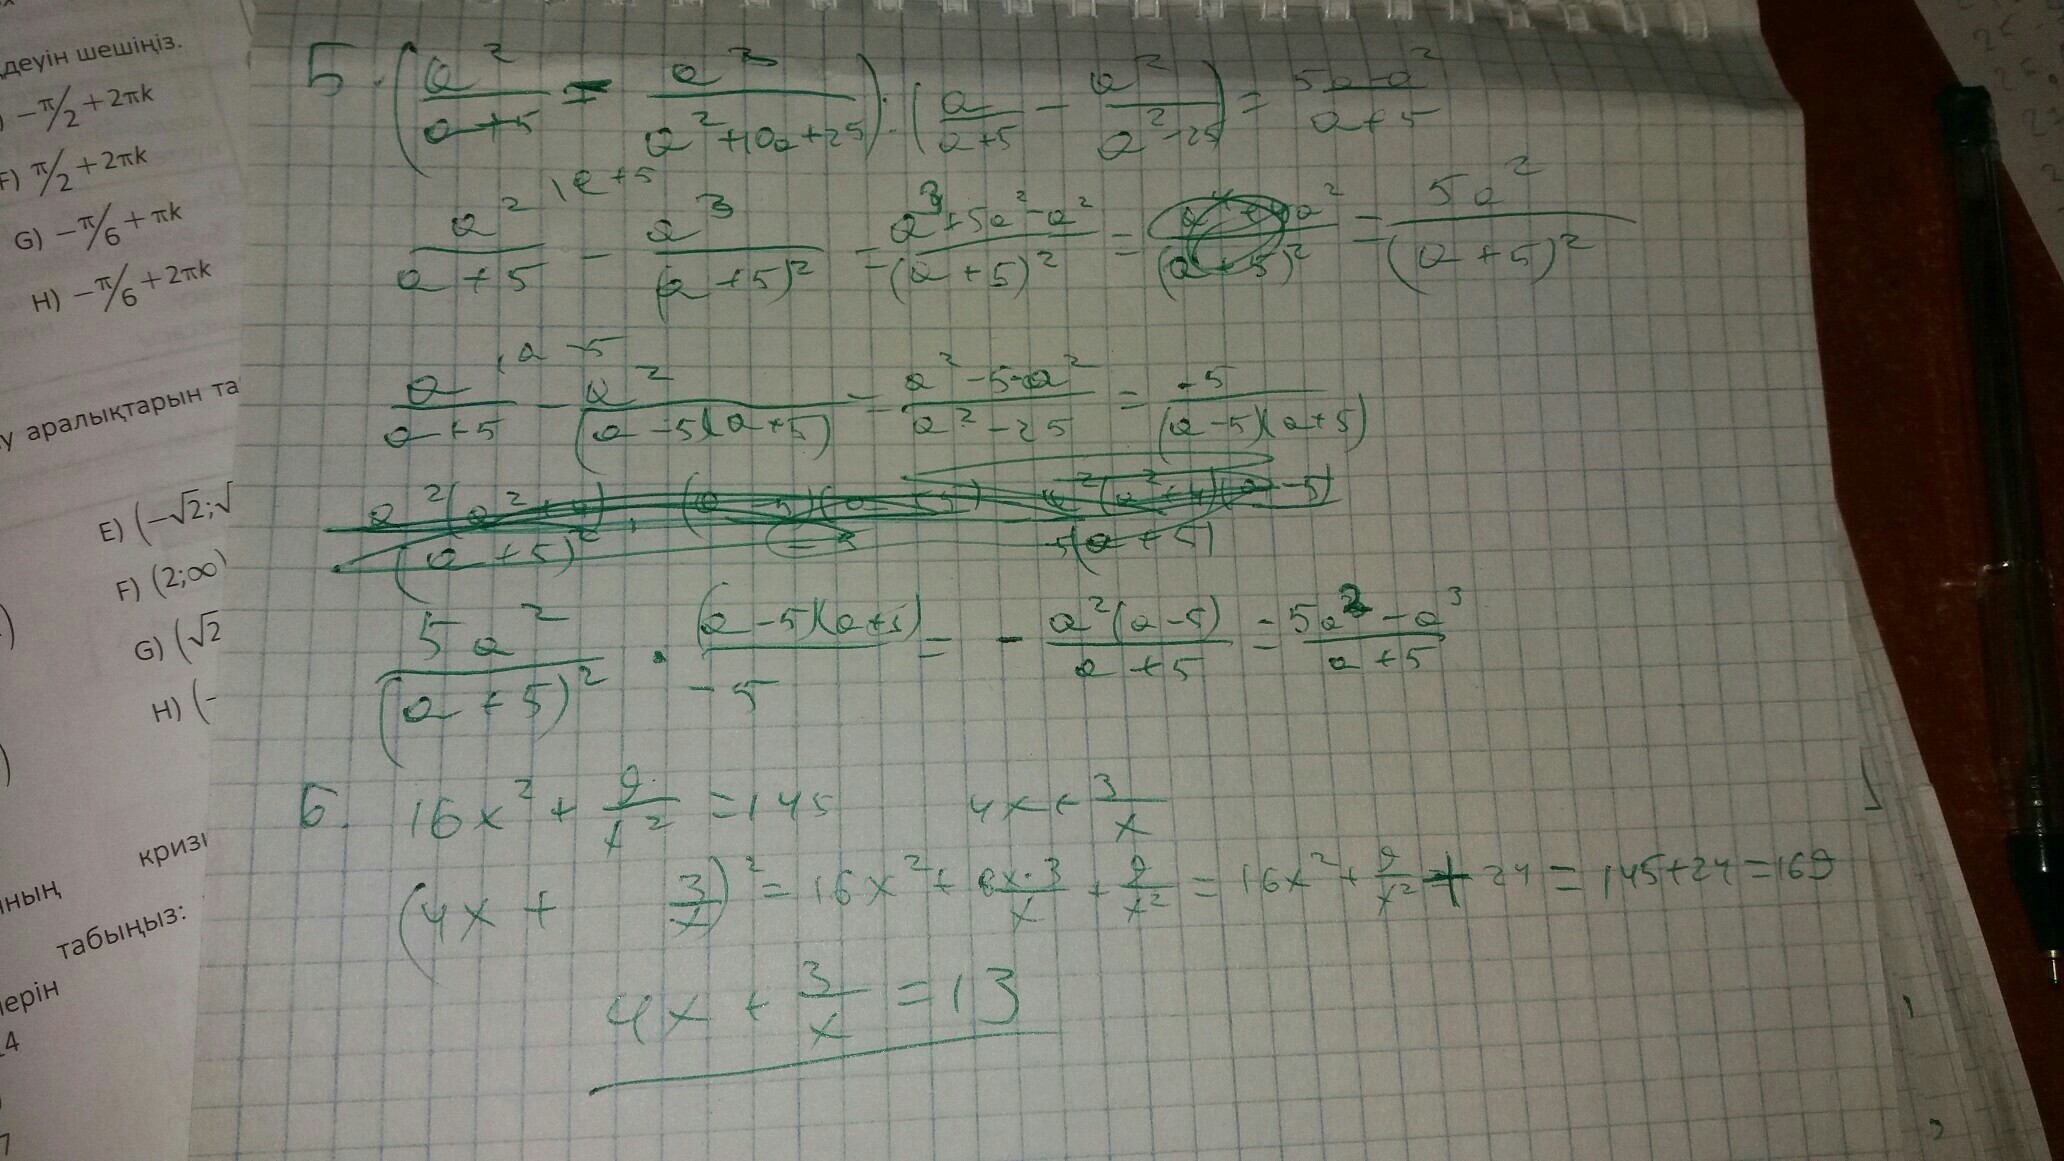 деуін шешіңіз.
−π/2+2πk
F) π/2+2πk
G) −π/6+πk
H) −π/6+2πk
у аралықтарын та
E) (−√2;√
F) (2;∞)
G) (√2
H) (-
кризи
ның
табыңыз:
ерін
5. (a²/(a+5) - a³/(a²+10a+25)) : (a/(a+5) − a²/(a²−25)) = (5a−a²)/(a+5)
a²/(a+5) ,a+5 − a³/(a+5)² = (a³+5a²−a²)/(a+5)² = = 5a²/(a+5)²
a/(a+5) ,a−5 − a²/((a−5)(a+5)) = (a²−5−a²)/(a²−25) = −5/((a−5)(a+5))
5a²/(a+5)² · ((a−5)(a+5))/−5 = − a²(a−5)/(a+5) = (5a²−a³)/(a+5)
6. 16x² + 9/x² = 145 4x + 3/x
(4x + 3/x)² = 16x² + 8x·3/x + 9/x² = 16x² + 9/x² + 24 = 145+24=169
4x + 3/x = 13